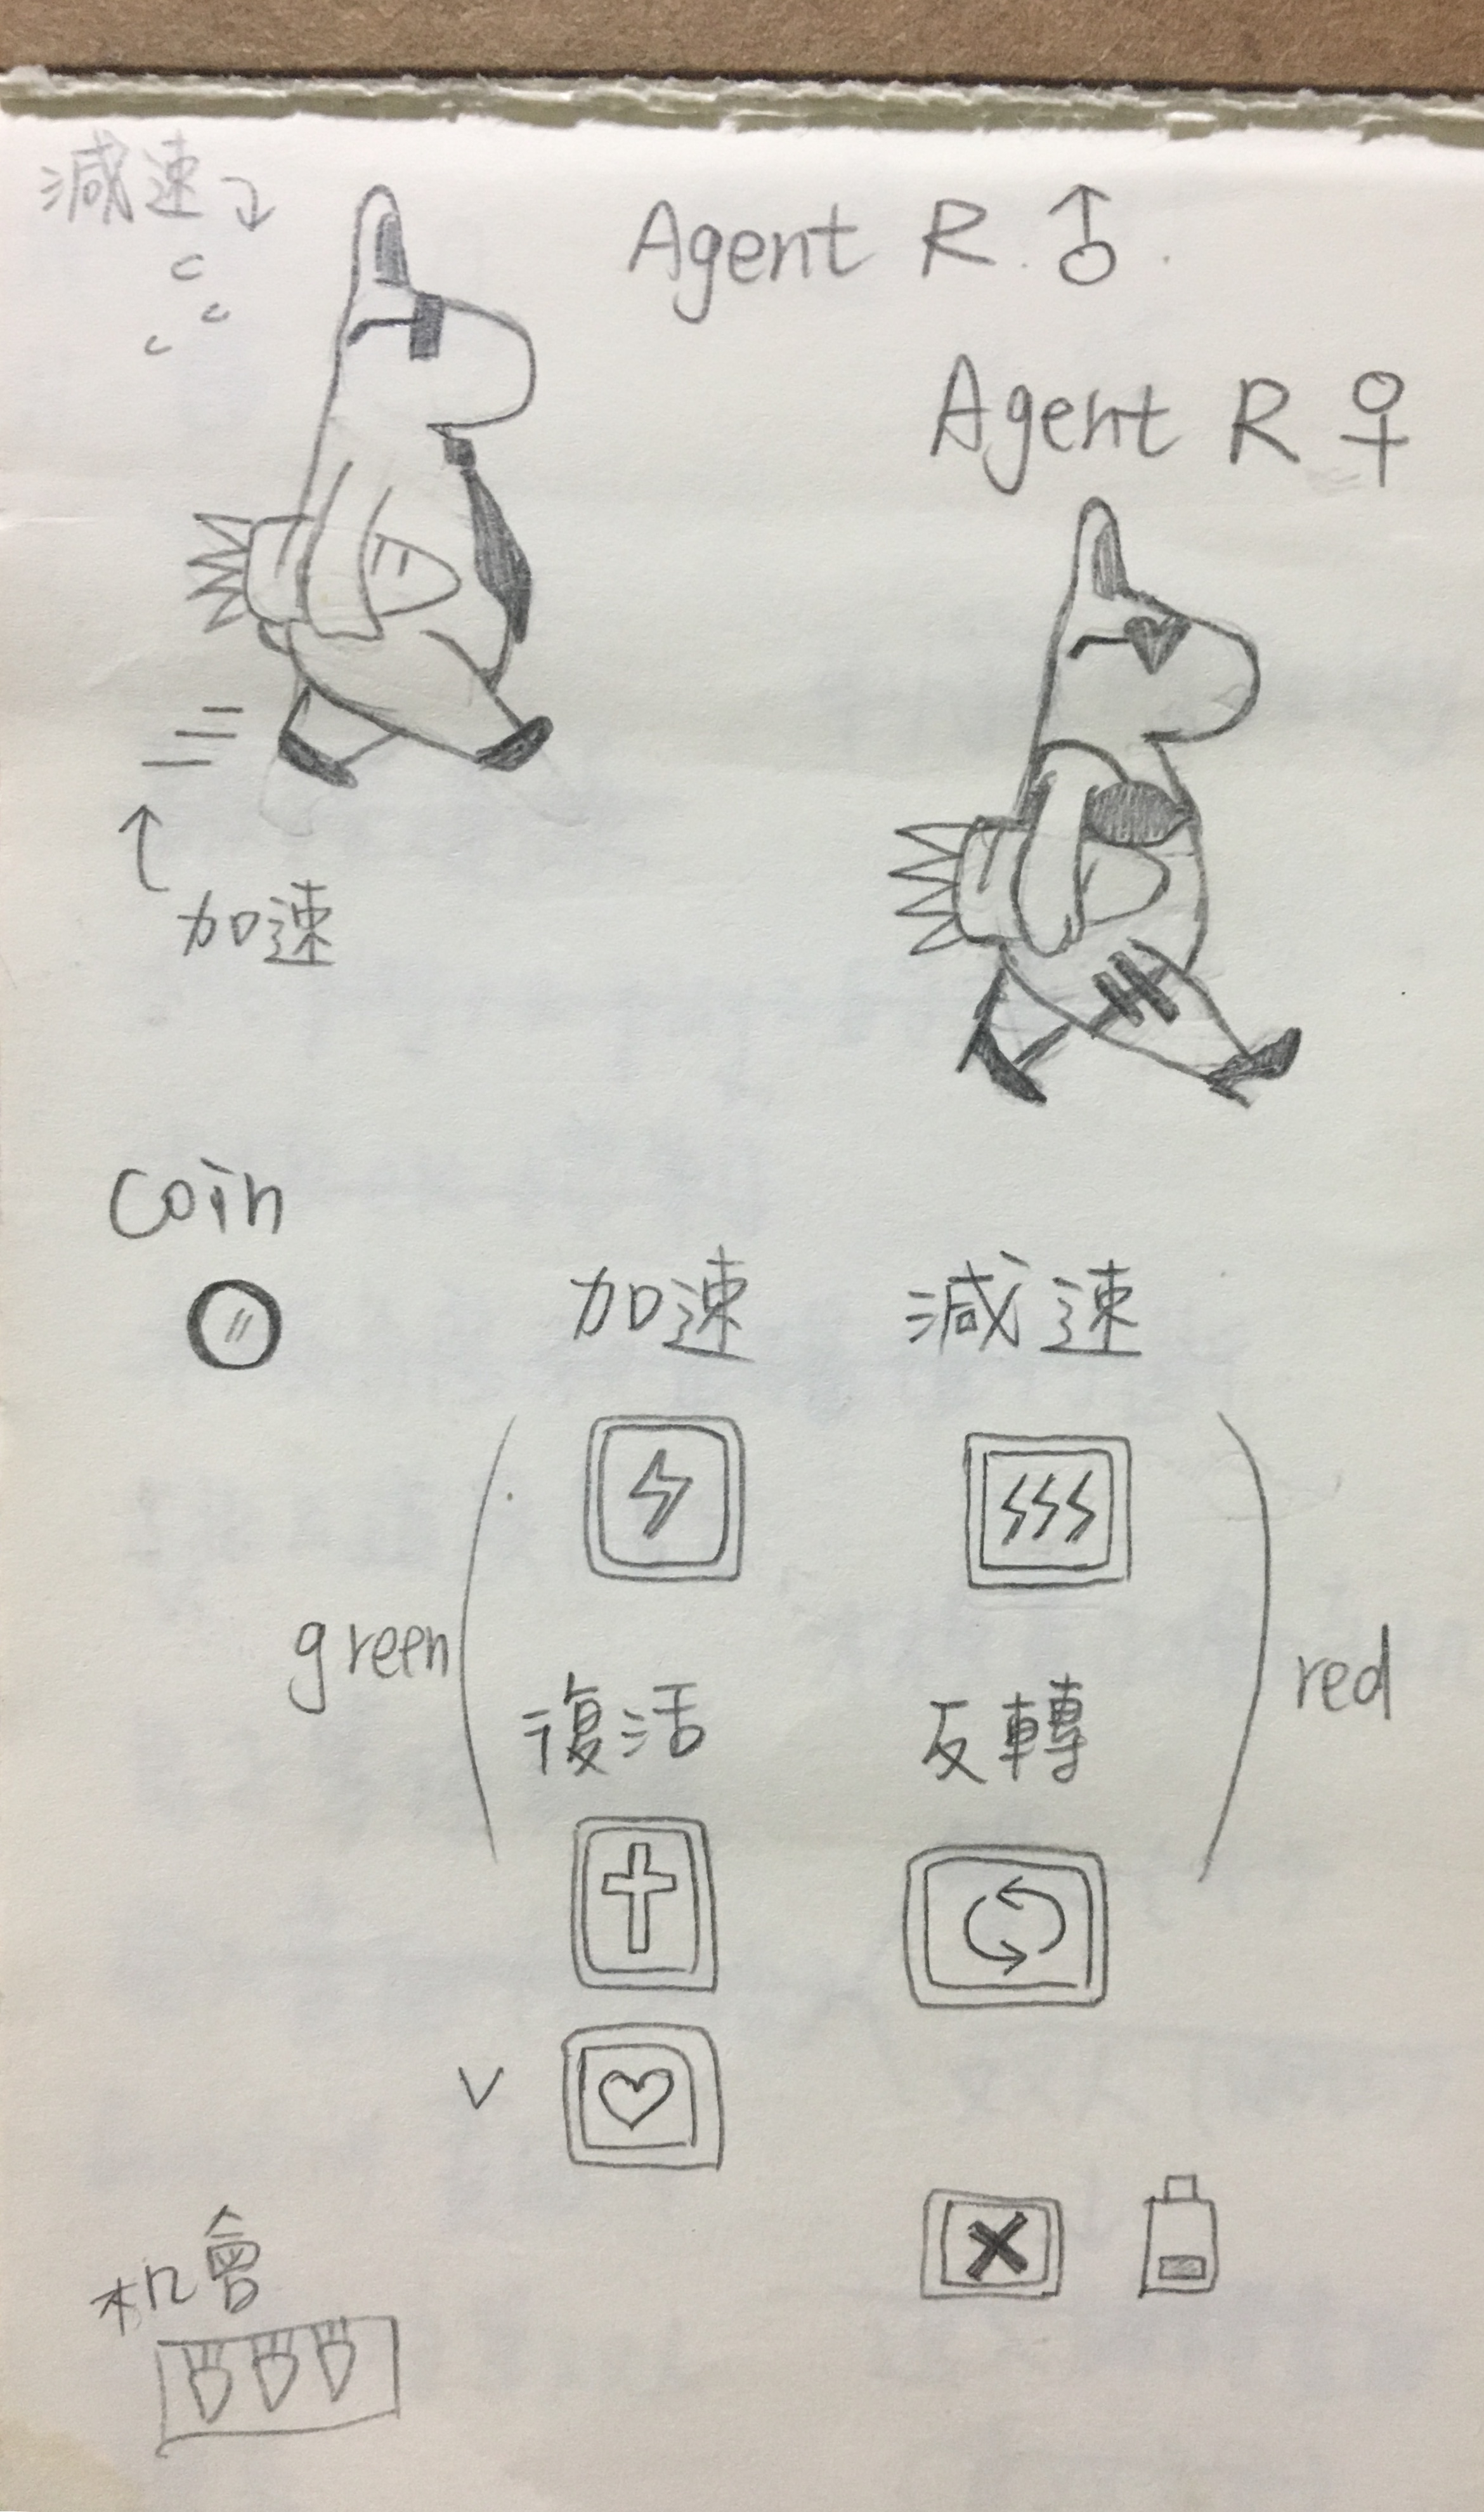 減速
Agent R ♂
Agent R ♀
加速
Coin
加速 減速
green
red
復活 反轉
V
机會